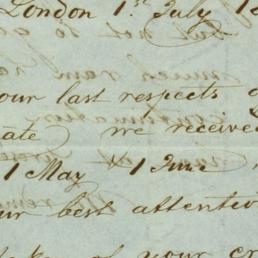 London 1.st July 1
our last respects
ate we received
1 May & 1 June
ur best attentio
of your cr